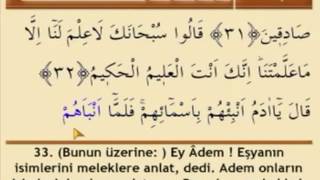 صَادِق۪ينَ ﴿٣١﴾ قَالُوا سُبْحَانَكَ لَاعِلْمَ لَنَٓا اِلَّا
مَاعَلَّمْتَنَاۜ اِنَّكَ اَنْتَ الْعَل۪يمُ الْحَك۪يمُ ﴿٣٢﴾
قَالَ يَٓااٰدَمُ اَنْبِئْهُمْ بِاَسْمَٓائِهِمْۚ فَلَمَّٓا اَنْبَاَهُمْ
33. (Bunun üzerine: ) Ey Âdem ! Eşyanın
isimlerini meleklere anlat, dedi. Adem onların